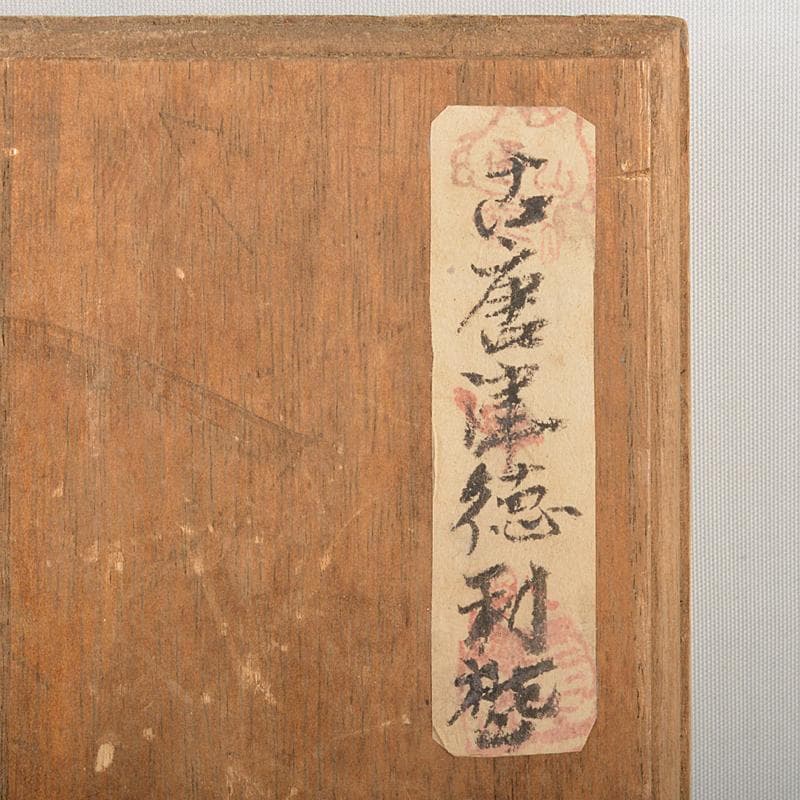 古唐津徳利